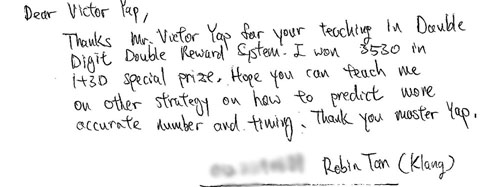 Dear Victor Yap,
Thanks Mr. Victor Yap for your teaching in Double
Digit Double Reward System. I won 3530 in
1+3D special prize. Hope you can teach me
on other strategy on how to predict more
accurate number and timing. Thank you master Yap.
Robin Tan (Klang)